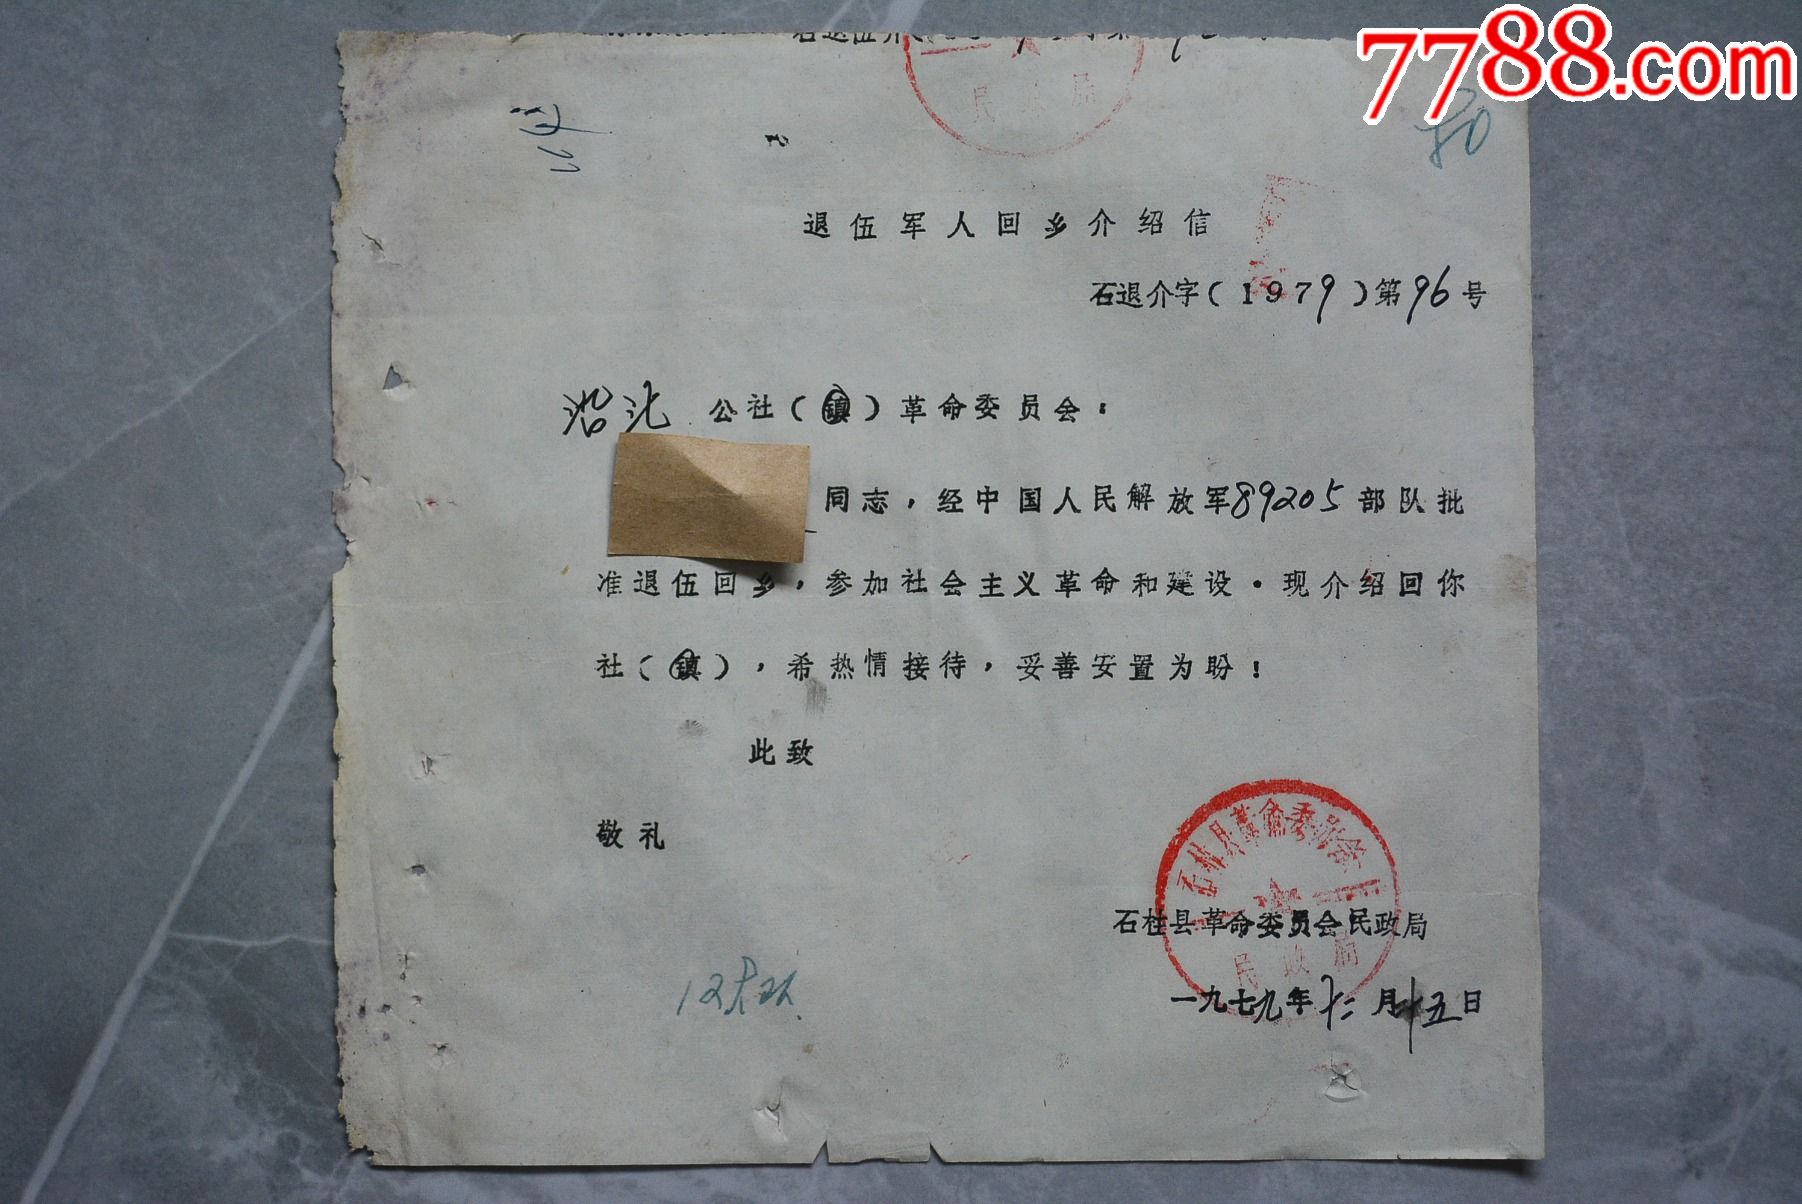 7788.com
80
退伍军人回乡介绍信
石退介字(1979)第96号
沿沱 公社(镇)革命委员会:
同志,经中国人民解放军89205部队批
准退伍回乡,参加社会主义革命和建设.现介绍回你
社(镇),希热情接待,妥善安置为盼!
此致
敬礼
石柱县革命委员会
民政局
石柱县革命委员会民政局
一九七九年十二月十五日